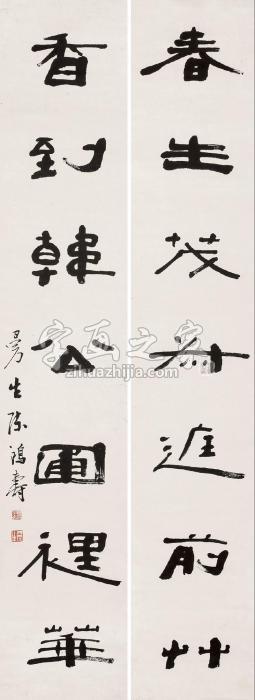 春生茂叔庭前艸
香到韓公圃裡華
曼生陳鴻壽
字画之家
zihuazhijia.com